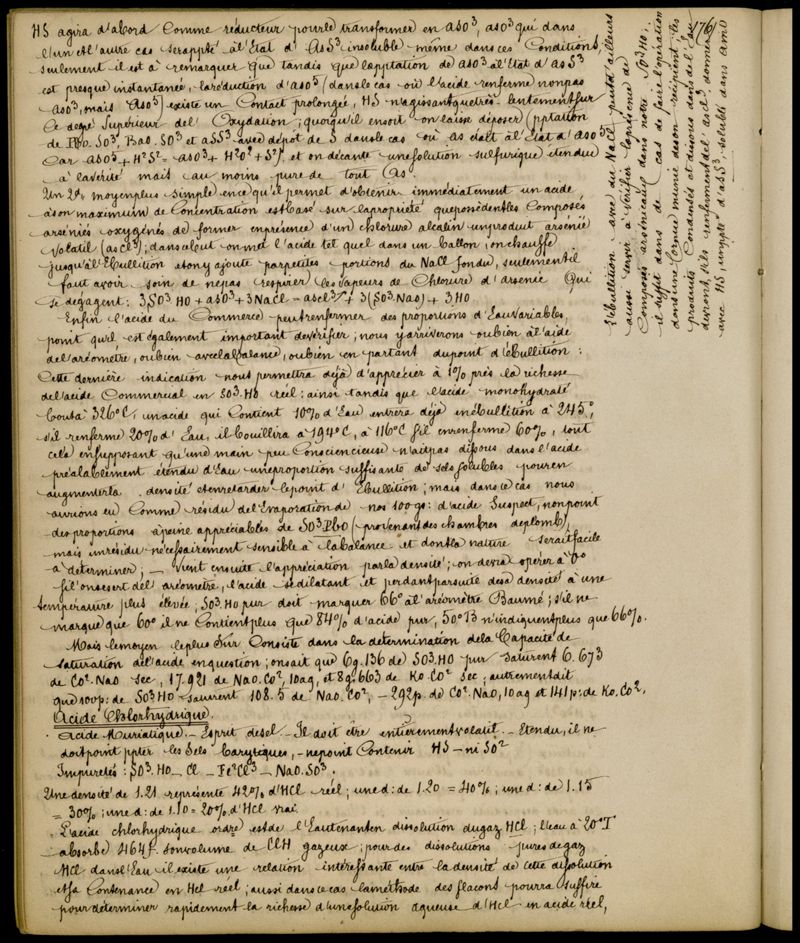 HS agira d'abord comme réducteur pour le transformer en aso³, aso³ qui dans
l'un et l'autre cas sera ppté à l'état d'AsS³ insoluble même dans ces conditions,
seulement il est à remarquer que tandis que la pptation de aso³ à l'état d'asS³
est presque instantanée, la réduction d'aso⁵ (dans le cas où l'acide renferme non pas
aso³, mais aso⁵) existe un contact prolongé, HS n'agissant que très lentement sur
ce degré supérieur de l'oxydation; quoiqu'il en soit on laisse déposer (pptation
de Pbo.SO³, Bao.SO³ et asS³ avec dépôt de S dans le cas où as était à l'état d'aso⁵
Car aso⁵ + H²S² = aso³ + H²O² + S²), et on décante une solution sulfurique étendue
à la vérité mais au moins pure de tout As.
Un 2d. moyen plus simple en ce qu'il permet d'obtenir immédiatement un acide
à son maximum de concentration est basé sur la propriété que possèdent les composés
arseniés oxygénés de former en présence d'un chlorure alcalin un produit arsenié
volatil (ascl³); dans ce but on met l'acide tel quel dans un ballon, on chauffe
jusqu'à l'ébullition et on y ajoute par petites portions du NaCl fondu, seulement il
faut avoir soin de ne pas respirer les vapeurs de chlorure d'arsenic qui
se dégagent: 3SO³HO + aso³ + 3NaCl = ascl³ + 3(SO³.Nao) + 3HO
Enfin l'acide du Commerce peut renfermer des proportions d'Eau variables,
point qu'il est également important de vérifier; nous y arriverons ou bien à l'aide
de l'aréomètre, ou bien avec la balance, ou bien en partant du point d'ébullition:
Cette dernière indication nous permettra déjà d'apprécier à 1% près la richesse
de l'acide commercial en SO³.HO réel: ainsi tandis que l'acide monohydraté
bout à 326°C, un acide qui contient 10% d'Eau entrera déjà en ébullition à 245°,
s'il renferme 20% d'Eau, il bouillira à 194°C, à 116°C s'il en renferme 60%, tout
cela en supposant qu'une main peu consciencieuse n'ait pas dissous dans l'acide
préalablement étendu d'Eau une proportion suffisante de sels solubles pour en
augmenter la densité et en retarder le point d'ébullition; mais dans ce cas nous
aurions eu comme résidu de l'évaporation de nos 100gs: d'acide suspect, non point
des proportions à peine appréciables de SO³Pbo (provenant des chambres de plomb)
mais un résidu nécessairement sensible à la balance et dont la nature serait facile
à déterminer; — Vient ensuite l'appréciation par la densité; on devra opérer à 0°
si l'on se sert de l'aréomètre, l'acide se dilatant et perdant par suite de sa densité à une
température plus élevée; SO³.HO pur doit marquer 66° à l'aréomètre Baumé; s'il ne
marque que 60° il ne contient plus que 84% d'acide pur, 50°B n'indiquent plus que 66%.
Mais le moyen le plus sûr consiste dans la détermination de la capacité de
saturation de l'acide en question; on sait que 6g.136 de SO³.HO pur saturent 6.673
de Co².Nao sec, 17.921 de Nao.Co², 10aq, et 8g.663 de Ko.Co² sec; autrement dit
que 100p: de SO³HO saturent 108.5 de Nao.Co², — 292p. de Co².Nao, 10aq et 141p: de Ko.Co².
Acide Chlorhydrique.
Acide Muriatique. — Esprit de sel. — Il doit être entièrement volatil. — Etendu, il ne
doit point ppter les sels barytiques, — ne point contenir HS — ni SO²
Impuretés: SO³.HO — Cl — Fe²Cl³ — Nao.SO³.
Une densité de 1.21 représente 42% d'HCl réel; une d: de 1.20 = 40%; une d: de 1.15
= 30%; une d: de 1.10 = 20% d'HCl vrai.
L'acide chlorhydrique ordre est de l'Eau tenant en dissolution du gaz HCl; l'eau à 20°T
absorbe 464f. son volume de ClH gazeux; pour des dissolutions pures de gaz
HCl dans l'Eau il existe une relation intéressante entre la densité de cette dissolution
et sa contenance en HCl réel; aussi dans ce cas la méthode des flacons pourra suffire
pour déterminer rapidement la richesse d'une solution aqueuse d'HCl en acide réel,
176)
l'ébullition avec du NaCl peut d'ailleurs
aussi servir à vérifier la présence de
Composés arsénicaux dans notre SO³HO;
il suffit dans ce cas de faire l'opération
dans une cornue munie de son récipient: les
produits condensés et dissous dans de l'Eau
devront, s'ils renferment de l'ascl³, donner
avec HS, un ppté d'asS³, soluble dans AmO